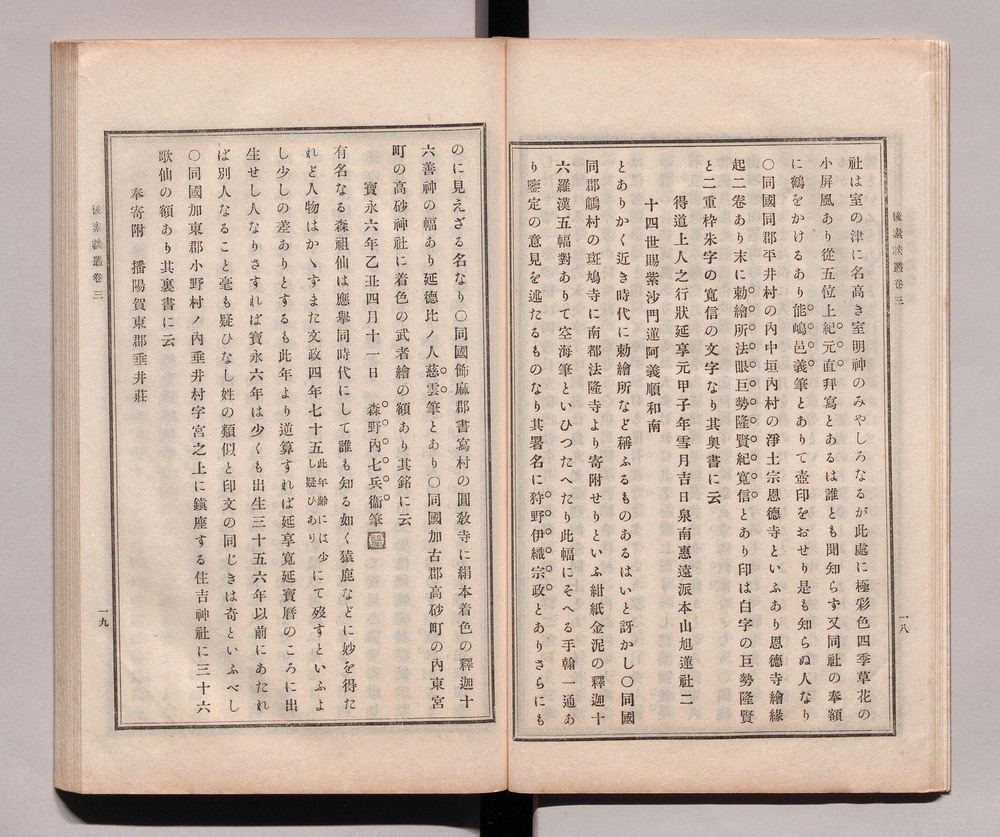 後素談叢卷三
一八
社は室の津に名高き室明神のみやしろなるが此處に極彩色四季草花の
小屏風あり從五位上紀元直拜寫とあるは誰とも聞知らす又同社の奉額
に鶴をかけるあり能嶋邑義筆とありて壺印をおせり是も知らぬ人なり
〇同國同郡平井村の內中垣內村の淨土宗恩德寺といふあり恩德寺繪緣
起二卷あり末に勅繪所法眼巨勢隆賢紀寬信とあり印は白字の巨勢隆賢
と二重枠朱字の寬信の文字なり其奥書に云
得道上人之行狀延享元甲子年雪月吉日泉南惠遠派本山旭蓮社二
十四世賜紫沙門蓮阿義順和南
とありかく近き時代に勅繪所など稱ふるものあるはいと訝かし〇同國
同郡鵤村の斑鳩寺に南都法隆寺より寄附せりといふ紺紙金泥の釋迦十
六羅漢五幅對ありて空海筆といひつたへたり此幅にそへる手翰一通あ
り鑒定の意見を述たるものなり其署名に狩野伊織宗政とありさらにも
のに見えざる名なり〇同國飾麻郡書寫村の圓敎寺に絹本着色の釋迦十
六善神の幅あり延德比ノ人慈雲筆とあり〇同國加古郡高砂町の內東宮
町の高砂神社に着色の武者繪の額あり其銘に云
寶永六年乙丑四月十一日　森野內七兵衞筆
有名なる森祖仙は應擧同時代にして誰も知る如く猿鹿などに妙を得た
れど人物はかゝずまた文政四年七十五此年齡には少し疑ひありにて歿すといふよ
し少しの差ありとするも此年より逆算すれば延享寬延寶曆のころに出
生せし人なりさすれば寶永六年は少くも出生三十五六年以前にあたれ
ば別人なること毫も疑ひなし姓の類似と印文の同じきは奇といふべし
〇同國加東郡小野村ノ內垂井村字宮之上に鎭座する住吉神社に三十六
歌仙の額あり其裏書に云
奉寄附　播陽賀東郡垂井莊
後素談叢卷三
一九